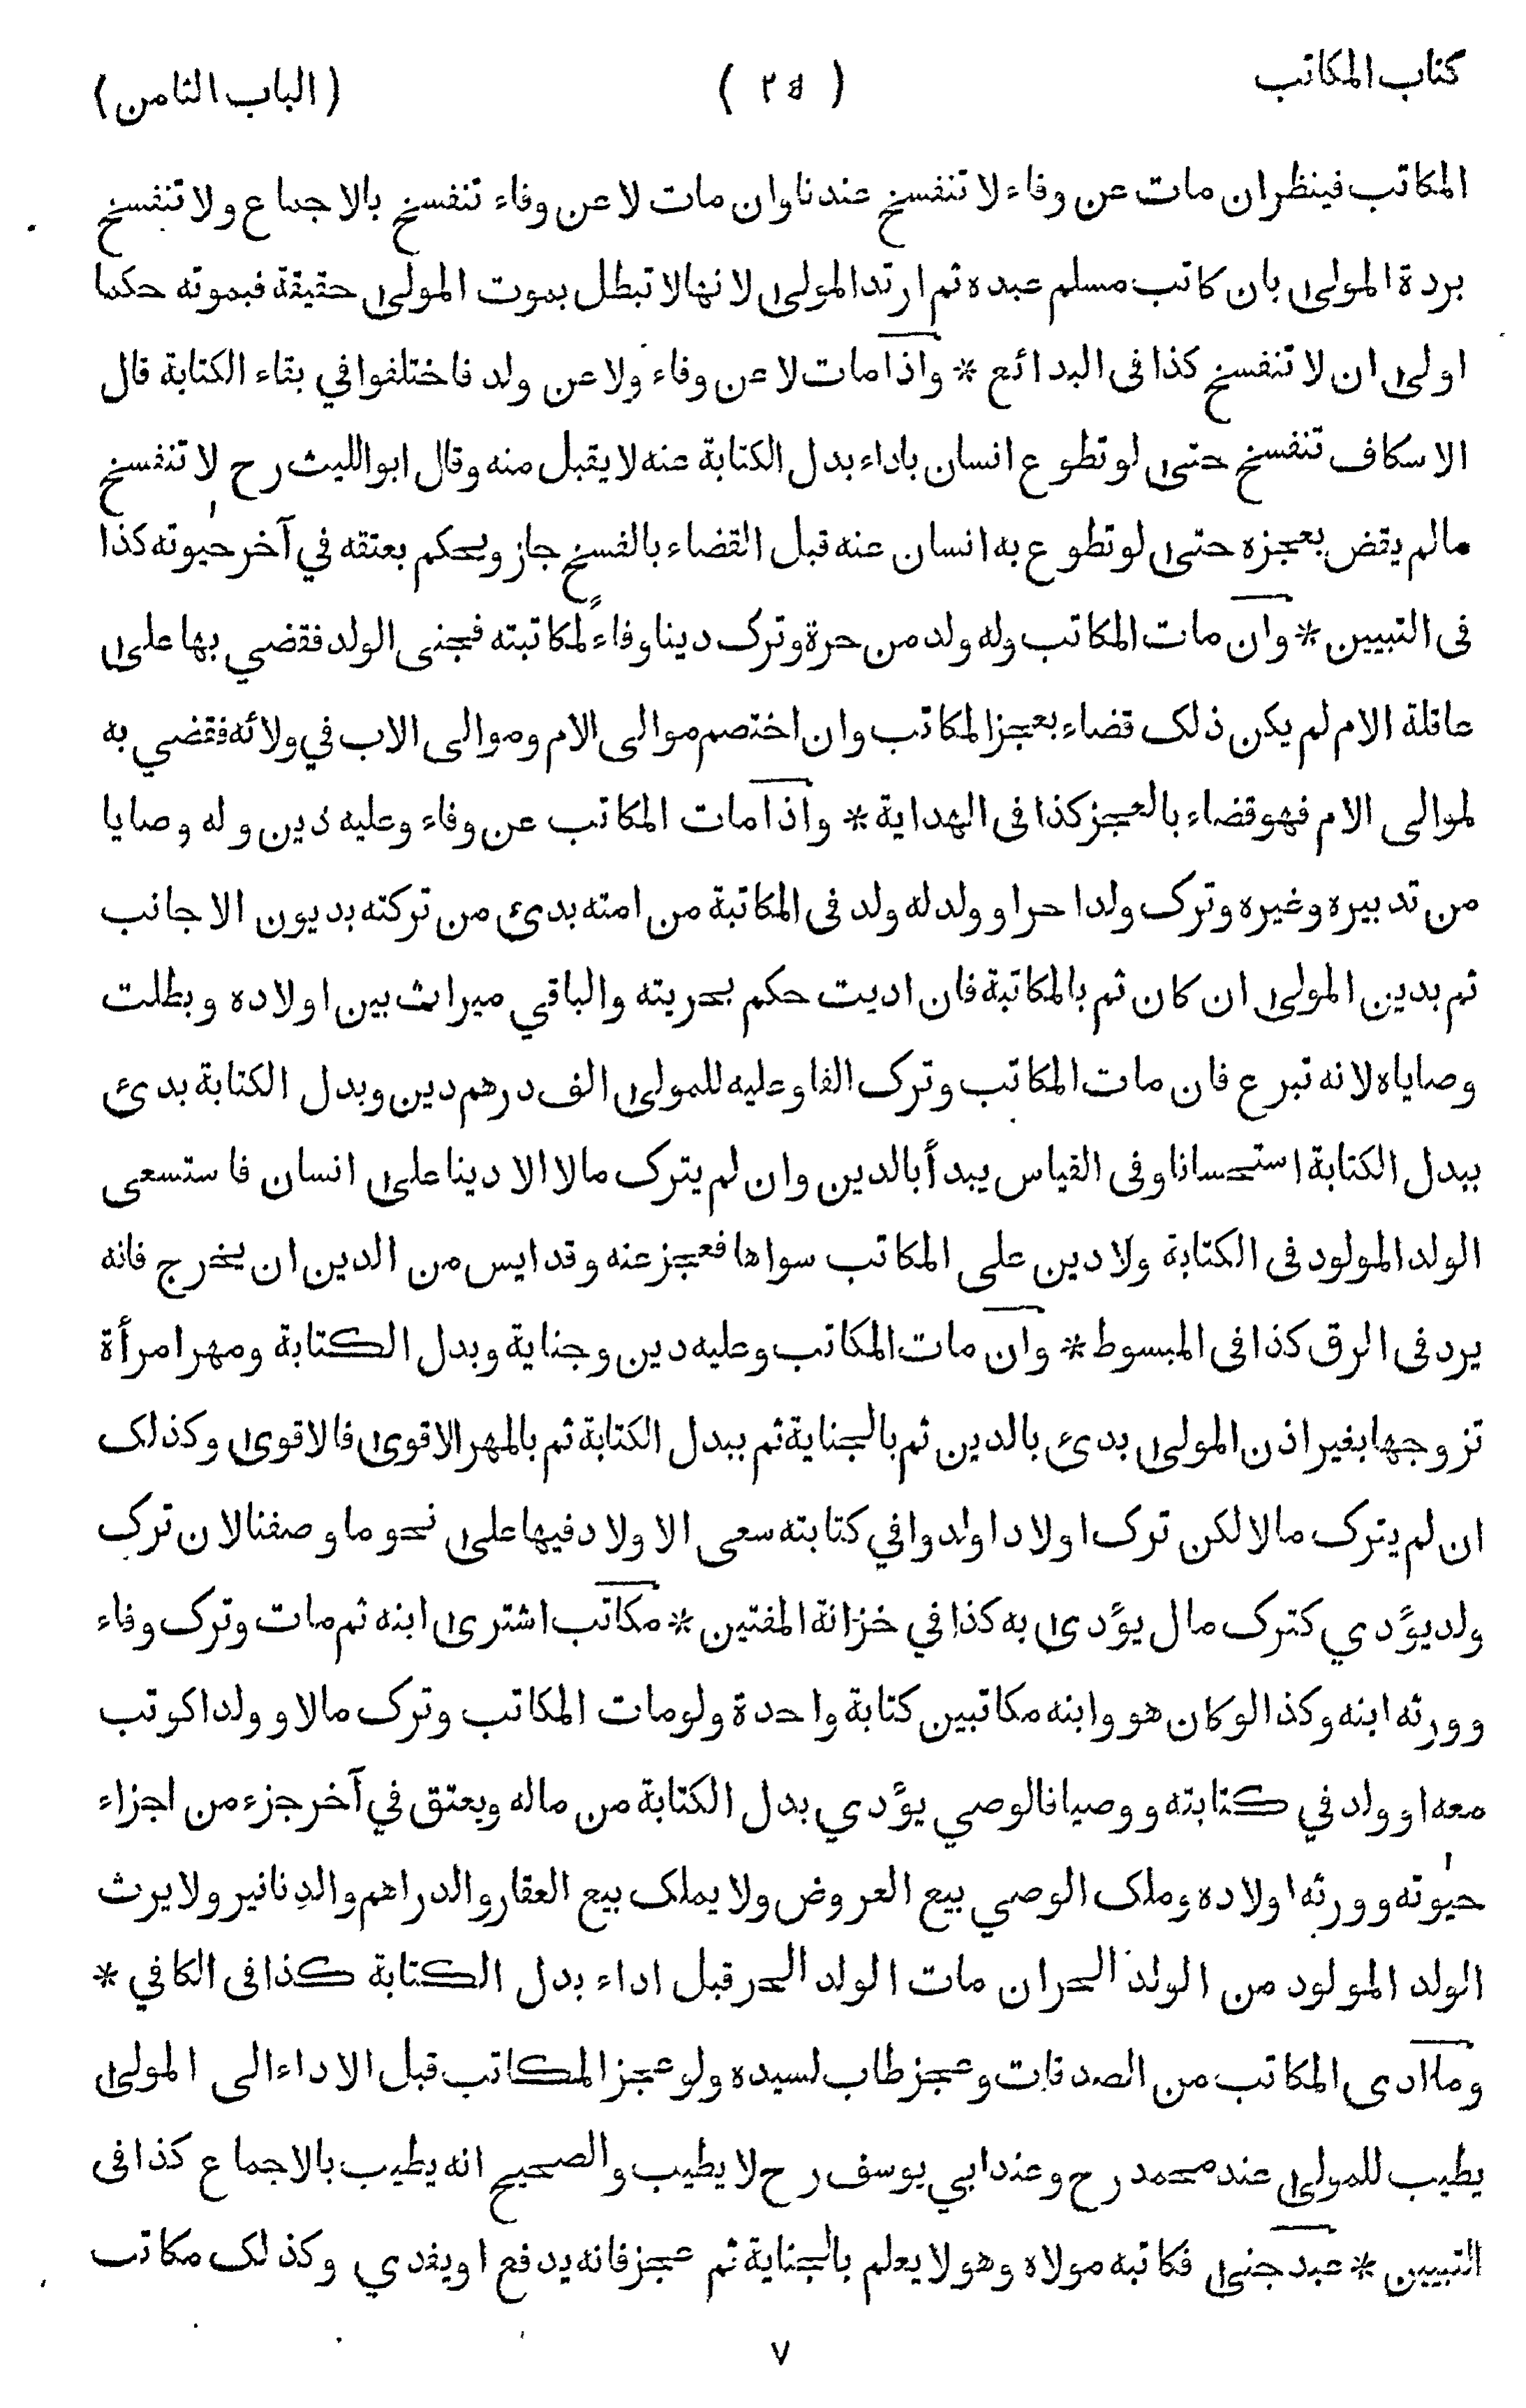 كتاب المكاتب
( ٢٥ )
( الباب الثامن )
المكاتب فينظر ان مات عن وفاء لا تنفسخ عندنا وان مات لا عن وفاء تنفسخ بالاجماع ولا تنفسخ
بردة المولى بان كاتب مسلم عبده ثم ارتد المولى لانها لا تبطل بموت المولى حقيقة فبموته حكما
اولى ان لا تنفسخ كذا فى البدائع * واذا مات لا عن وفاء ولا عن ولد فاختلفوا في بقاء الكتابة قال
الاسكاف تنفسخ حتى لو تطوع انسان باداء بدل الكتابة عنه لا يقبل منه وقال ابو الليث رح لا تنفسخ
مالم يقض بعجزه حتى لو تطوع به انسان عنه قبل القضاء بالفسخ جاز ويحكم بعتقه في آخر حيوته كذا
فى التبيين * وان مات المكاتب وله ولد من حرة وترك دينا وفاءً لمكاتبته فجنى الولد فقضي بها على
عاقلة الام لم يكن ذلك قضاء بعجز المكاتب وان اختصم موالى الام وموالى الاب في ولائه فقضي به
لموالى الام فهو قضاء بالعجز كذا فى الهداية * واذا مات المكاتب عن وفاء وعليه دين وله وصايا
من تدبيره وغيره وترك ولدا حرا وولد له ولد فى المكاتبة من امته بدئ من تركته بديون الاجانب
ثم بدين المولى ان كان ثم بالمكاتبة فان اديت حكم بحريته والباقي ميراث بين اولاده وبطلت
وصاياه لانه تبرع فان مات المكاتب وترك الفا وعليه للمولى الف درهم دين وبدل الكتابة بدئ
ببدل الكتابة استحسانا وفى القياس يبدأ بالدين وان لم يترك مالا الا دينا على انسان فاستسعى
الولد المولود فى الكتابة ولا دين على المكاتب سواها فعجز عنه وقد ايس من الدين ان يخرج فانه
يرد فى الرق كذا فى المبسوط * وان مات المكاتب وعليه دين وجناية وبدل الكتابة ومهر امرأة
تزوجها بغير اذن المولى بدئ بالدين ثم بالجناية ثم ببدل الكتابة ثم بالمهر الاقوى فالاقوى وكذلك
ان لم يترك مالا لكن ترك اولادا ولدوا في كتابته سعى الاولاد فيها على نحو ما وصفنا لان ترك
ولد يؤدي كترك مال يؤدى به كذا في خزانة المفتين * مكاتب اشترى ابنه ثم مات وترك وفاء
وورثه ابنه وكذا لو كان هو وابنه مكاتبين كتابة واحدة ولو مات المكاتب وترك مالا وولدا كوتب
معه او ولد في كتابته ووصيا فالوصي يؤدي بدل الكتابة من ماله ويعتق في آخر جزء من اجزاء
حيوته وورثه اولاده وملك الوصي بيع العروض ولا يملك بيع العقار والدراهم والدنانير ولا يرث
الولد المولود من الولد الحر ان مات الولد الحر قبل اداء بدل الكتابة كذا فى الكافي *
وما ادى المكاتب من الصدقات وعجز طاب لسيده ولو عجز المكاتب قبل الاداء الى المولى
يطيب للمولى عند محمد رح وعند ابي يوسف رح لا يطيب والصحيح انه يطيب بالاجماع كذا فى
التبيين * عبد جنى فكاتبه مولاه وهو لا يعلم بالجناية ثم عجز فانه يدفع او يفدي وكذلك مكاتب
٧